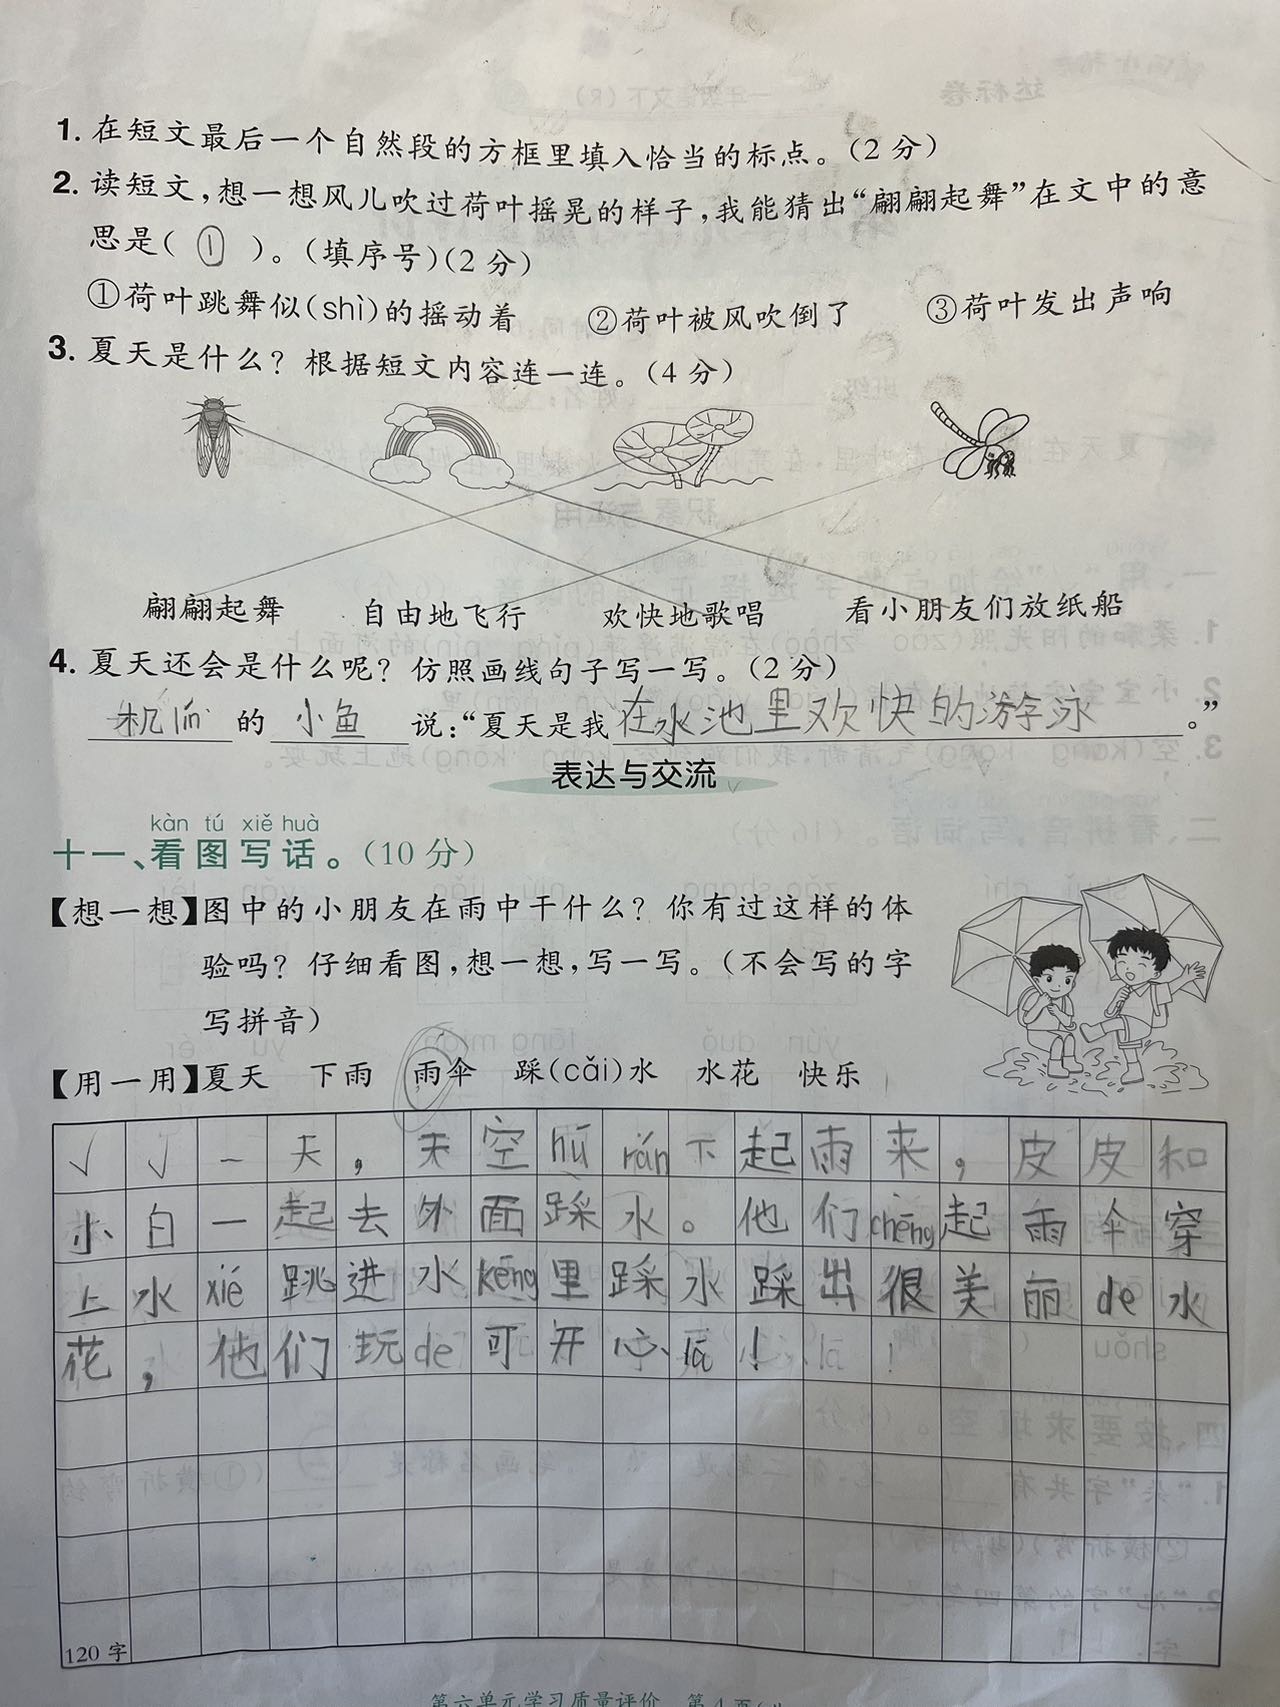 1. 在短文最后一个自然段的方框里填入恰当的标点。(2分)
2. 读短文,想一想风儿吹过荷叶摇晃的样子,我能猜出“翩翩起舞”在文中的意
思是( ① )。(填序号)(2分)
①荷叶跳舞似(shì)的摇动着 ②荷叶被风吹倒了 ③荷叶发出声响
3. 夏天是什么? 根据短文内容连一连。(4分)
翩翩起舞 自由地飞行 欢快地歌唱 看小朋友们放纸船
4. 夏天还会是什么呢? 仿照画线句子写一写。(2分)
的 小鱼 说:“夏天是我在水池里欢快的游泳。”
表达与交流
kàn tú xiě huà
十一、看图写话。(10分)
【想一想】图中的小朋友在雨中干什么? 你有过这样的体
验吗? 仔细看图,想一想,写一写。(不会写的字
写拼音)
【用一用】夏天 下雨 雨伞 踩(cǎi)水 水花 快乐
一天,天空hū rán下起雨来,皮皮和
小白一起去外面踩水。他们chēng起雨伞穿
上水xié跳进水kēng里踩水踩出很美丽de水
花,他们玩de可开心lā!
120字
第六单元学习质量评价 第4页